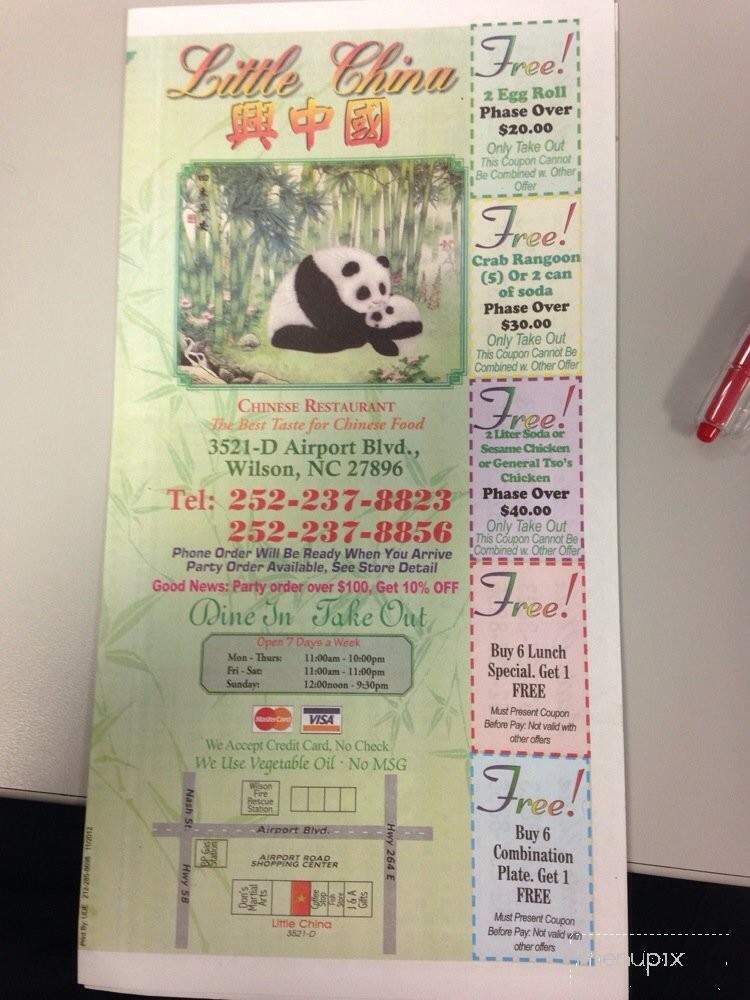 Little China
興中國
CHINESE RESTAURANT
The Best Taste for Chinese Food
3521-D Airport Blvd.,
Wilson, NC 27896
Tel: 252-237-8823
252-237-8856
Phone Order Will Be Ready When You Arrive
Party Order Available, See Store Detail
Good News: Party order over $100, Get 10% OFF
Dine In Take Out
Open 7 Days a Week
Mon - Thurs: 11:00am - 10:00pm
Fri - Sat: 11:00am - 11:00pm
Sunday: 12:00noon - 9:30pm
MasterCard VISA
We Accept Credit Card, No Check
We Use Vegetable Oil · No MSG
Wilson
Fire
Rescue
Station
Nash St.
Airport Blvd.
Hwy 264 E
BP Gas
Station
AIRPORT ROAD
SHOPPING CENTER
Hwy 58
Don's
Martial
Arts
Coffee
Stop
Fish
Store
J & A
Gifts
Little China
3521-D
11/2012
Free!
2 Egg Roll
Phase Over
$20.00
Only Take Out
This Coupon Cannot
Be Combined w. Other
Offer
Free!
Crab Rangoon
(5) Or 2 can
of soda
Phase Over
$30.00
Only Take Out
This Coupon Cannot Be
Combined w. Other Offer
Free!
2 Liter Soda or
Sesame Chicken
or General Tso's
Chicken
Phase Over
$40.00
Only Take Out
This Coupon Cannot Be
Combined w. Other Offer
Free!
Buy 6 Lunch
Special. Get 1
FREE
Must Present Coupon
Before Pay: Not valid with
other offers
Free!
Buy 6
Combination
Plate. Get 1
FREE
Must Present Coupon
Before Pay: Not valid with
other offers
menupix